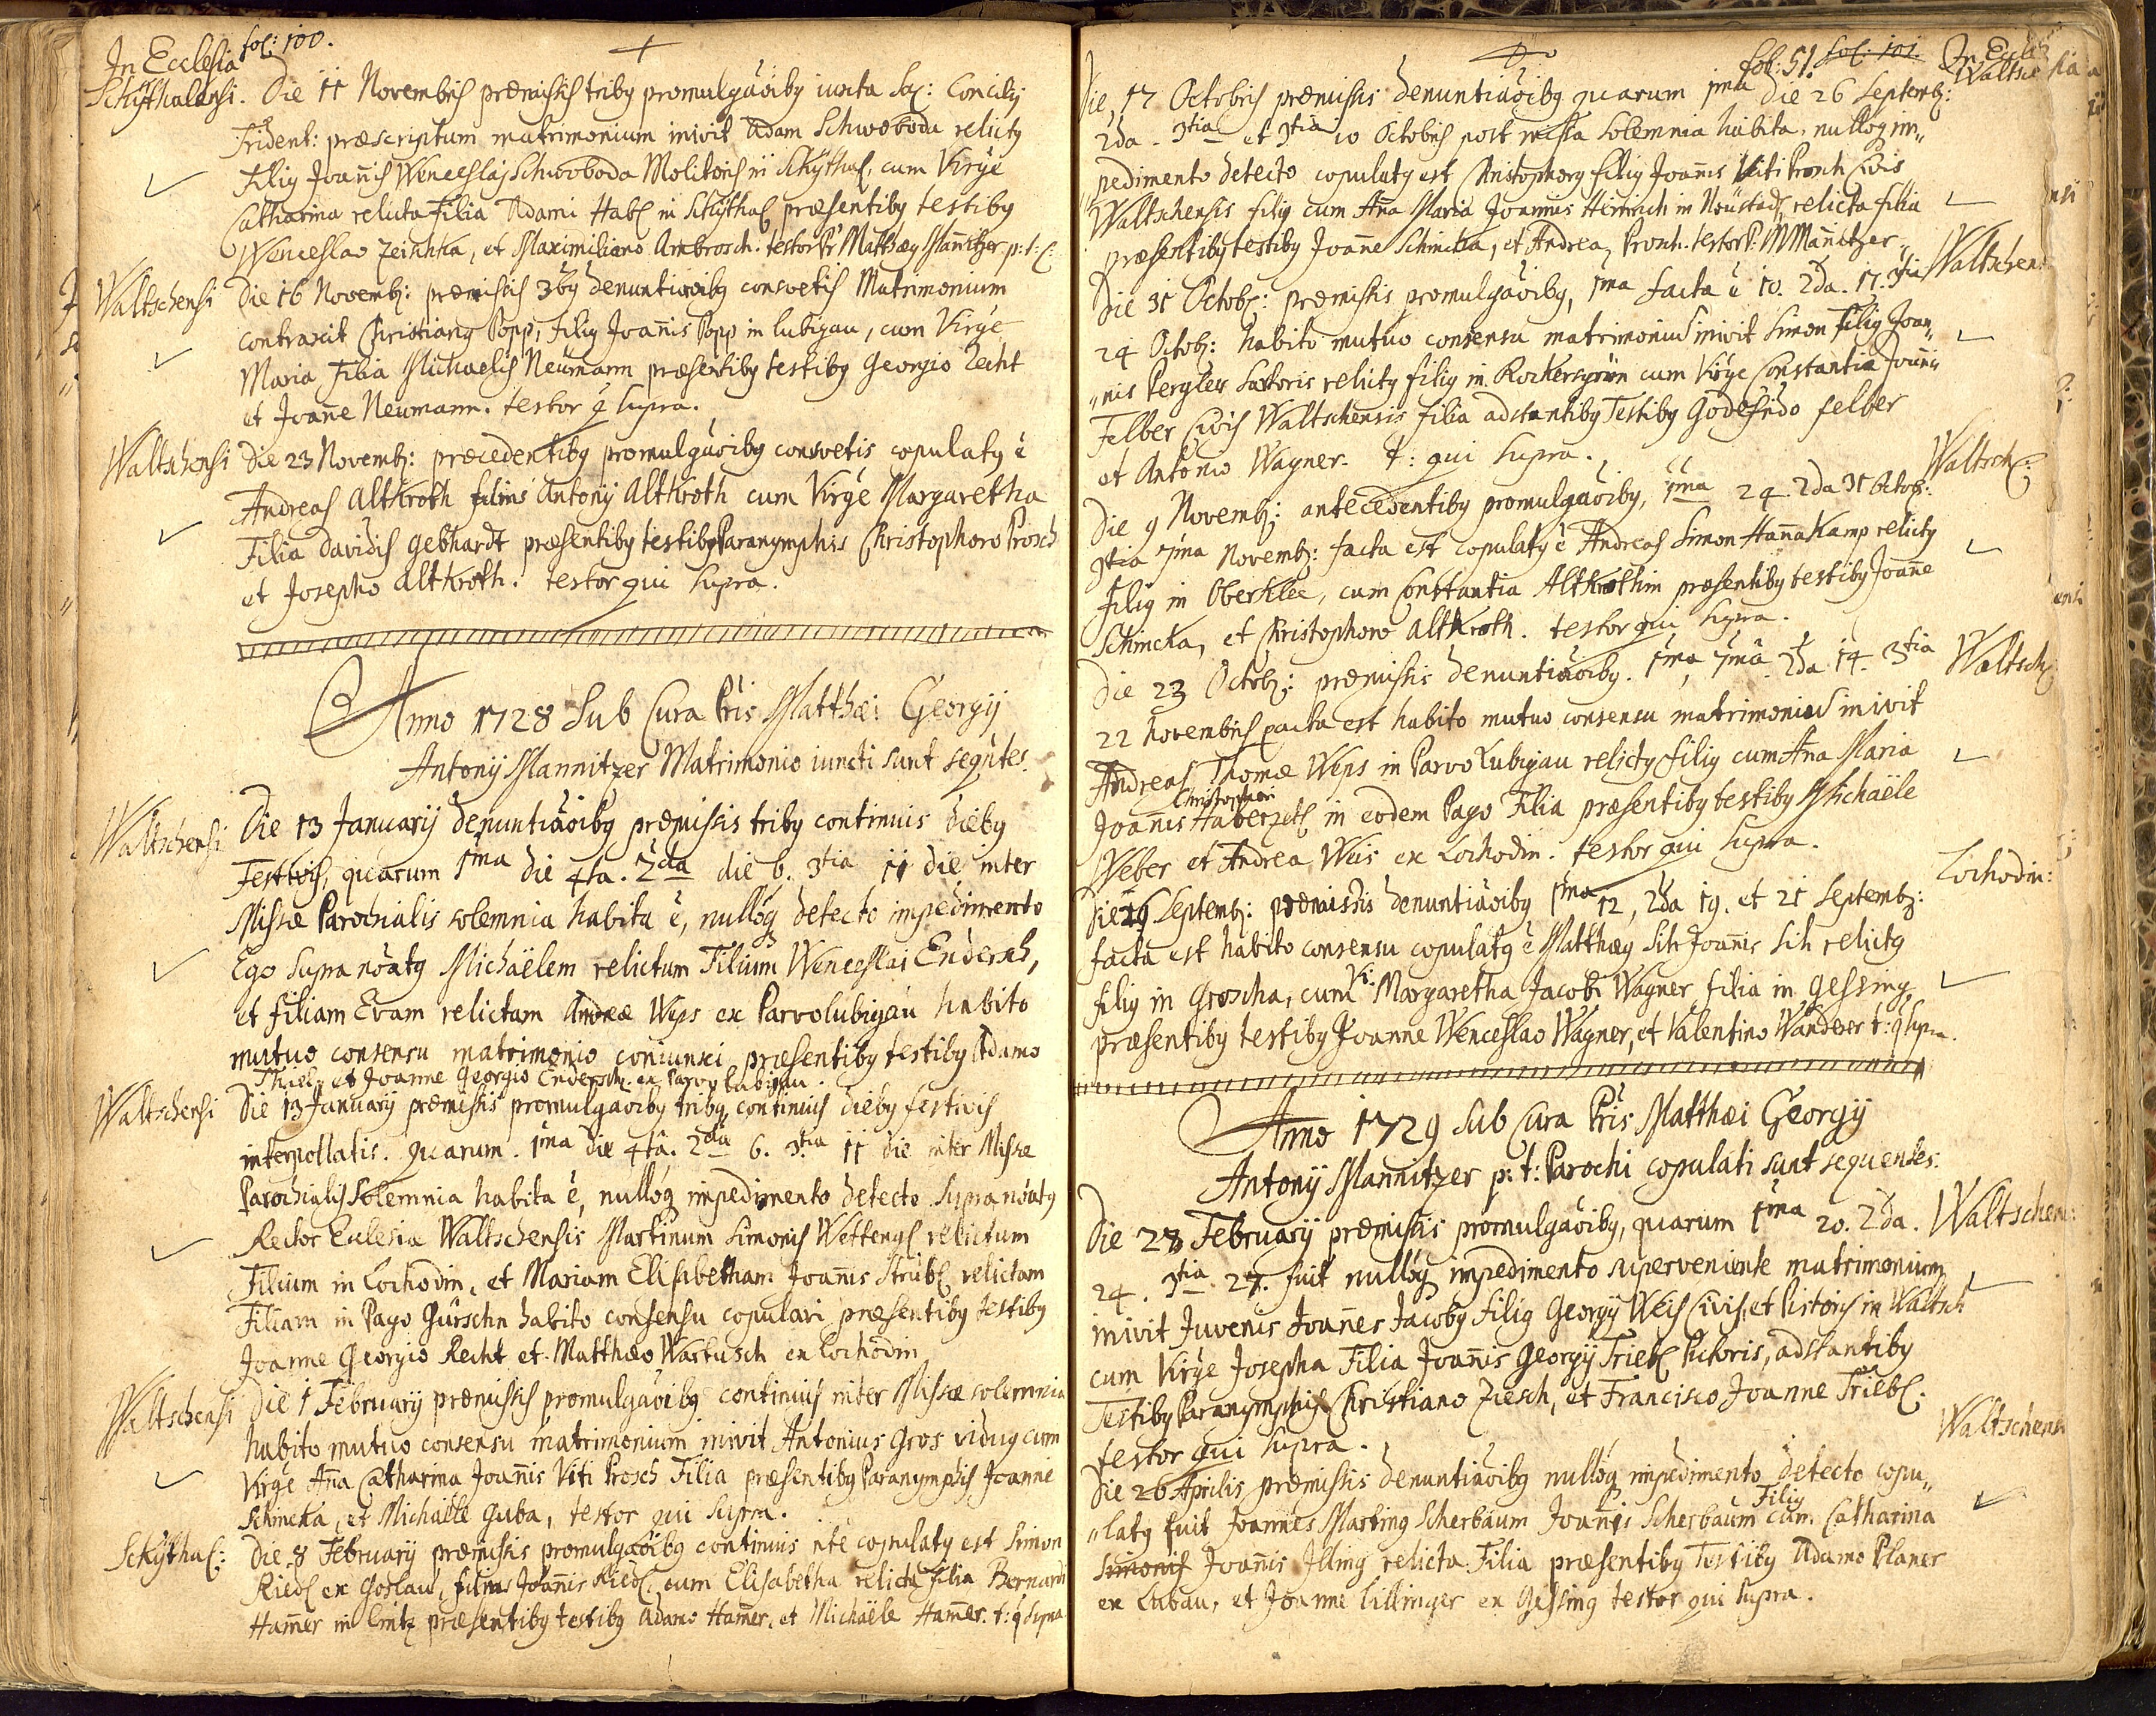 In Ecclesia fol: 100.
Schÿthalensi. Die 11 Novembris præmissis tribq promulgãoibq iuxta Sac: Concilij
Trident: præscriptum matrimonium inivit Adam Schwoboda relictq
Filiq Joañis Wenceslaj Schwoboda Molitoris in Schÿthal, cum Virge
Catharina relicta Filia Adami Habl in Schÿthal præsentibq testibq
Wenceslao Zeichka, et Maximiliano Ambrosch. testor Pr Matthæq Mañitzer p: t: C:
Waltschensi Die 16 Novemb: præmissis 3bq denuntiãoibq consvetis Matrimonium
contraxit Christianq Popp, filiq Joañis Popp in Lubigau, cum Virge
Maria Filia Michaelis Neumann præsentibq testibq Georgio Recht
et Joañe Neumann. testor q supra.
Waltschensi Die 23 Novemb: præcedentibq promulgãoibq consvetis copulatq ẽ
Andreas Altkroth filius Antonij Altkroth cum Virge Margaretha
Filia Davidis Gebhardt præsentibq testibq Paranymphis Christophoro Prosch
et Josepho Altkroth. testor qui supra.
Anno 1728 Sub Cura Pris Matthæi Georgij
Antonij Mannitzer Matrimonio iuncti sunt seqũtes.
Waltschensi Die 13 Januarij denuntiãoibq præmissis tribq continuis diebq
Festivis, quarum 1ma die 4ta. 2da die 6. 3tia 11 die inter
Missæ Parochialis solemnia habita ẽ, nullóq detecto impedimento
Ego Supranoãtq Michaëlem relictum Filium Wenceslai Endersch,
et filiam Evam relictam Andreæ Weps ex Parvolubigau habito
mutuo consensu matrimonio coniunxi præsentibq testibq Adamo
Thiel, et Joanne Georgio Endersch ex Parvo Lubigau.
Waltschensi Die 13 Januarij præmissis promulgãoibq tribq continuis diebq festivis
interpollatis. quarum. 1ma die 4tâ. 2da 6. 3tia 11 die inter Missæ
Parochialis Solemnia habita ẽ, nullóq impedimento detecto Supranoãtq
Rector Eclesiæ Waltschensis Martinum Simonis Wettengl relictum
Filium in Lochodin, et Mariam Elisabetham Joañis Strübl relictam
Filiam in Pago Gürschin habito consensu copulavi præsentibq testibq
Joanne Georgio Recht et Matthæo Wartusch ex Lochodin
Waltschensi Die 1 February præmissis promulgãoibq continuis inter Missæ solemnia
habito mutuo consensu matrimonium inivit Antonius Gros viduq cum
Virge Aña Catharina Joañis Viti Prosch Filia præsentibq Paranymphis Joanne
Schincka, et Michaële Guba, testor qui supra.
Schÿthal: Die 8 February præmissis promulgãoibq continuis rite copulatq est Simon
Riedl ex Goslau, filius Joañis Riedl, cum Elisabetha relicta filia Bernardi
Hamer in Lintz præsentibq testibq Adamo Hamer, et Michaële Hamer. t: q supra
fol: 51. fol: 101. In Eccles
Waltsche
Die 17 Octobris præmissis denuntiãoibq quarum 1ma die 26 Septemb:
2da. 3tia et 3tia 10 Octobris post missæ solemnia habita, nullóq im„
„pedimento detecto copulatq est Christophorq filiq Joañis Viti Prosch Civis
Waltschensis filiq cum Aña Maria Joannis Heinrich in Neustadl relicta filia
præsentibq testibq Joañe Schincka, et Andrea Prosch. testor P: M Mañitzer.
Waltschens
Die 31 Octob: præmissis promulgãoibq, 1ma facta ẽ 10. 2da. 17. 3tia
24 Octob: habito mutuo consensu matrimoniũ inivit Simon filiq Joan„
„nis Pergler Sartoris relictq filiq in Rockersgrün cum Virge Constantia Joañis
Felber Civis Waltschensis filia adstantibq Testibq Godefrido Felber
et Antonio Wagner. t: qui supra.
Waltsch:
Die 9 Novemb: antecedentibq promulgãoibq, 1ma 24. 2da 31 Octob:
3tia 7ma Novemb: facta est copulatq ẽ Andreas Simon Hañakamp relictq
filiq in Oberklee, cum Constantia Altkrothin præsentibq testibq Joañe
Schincka, et Christophoro Altkroth. testor qui supra.
Waltsch
Die 23 Octob: præmissis denuntiãoibq. 1ma, 7ma. 2da 14. 3tia
22 Novembris facta est habito mutuo consensu matrimoniũ inivit
Andreas Thomæ Weps in Parvo Lubigau relictq filiq cum Aña Maria
Christophori
Joañis Haberzetl in eodem Pago Filia præsentibq testibq Michaële
Weber et Andrea Weis ex Lochodin. testor qui supra.
Lochodin:
Die 29 Septemb: præmissis denuntiãoibq 1ma 12, 2da 19. et 21 Septemb:
facta est habito consensu copulatq ẽ Matthæq Sih Joañis Sih relictq
filiq in Groscha, cum Vi: Margaretha Jacobi Wagner filia in Gessing
præsentibq testibq Joanne Wenceslao Wagner, et Valentino Wanderer t: q supra.
Anno 1729 sub Cura Pris Matthæi Georgij
Antonij Mannitzer p: t: Parochi copulati sunt sequentes.
Waltschen:
Die 28 February præmissis promulgãoibq, quarum 1ma 20. 2da.
24. 3tia 27. fuit nullóq impedimento superveniente matrimonium
inivit Juvenis Joañes Jacobq filiq Georgij Weis Civis, et Pistoris in Waltsch
cum Virge Josepha Filia Joañis Georgij Triebl Pictoris, adstantibq
Testibq Paranymphis Christiano Ziesch, et Francisco Joanne Triebl.
testor qui supra.
Waltschens
Die 26 Aprilis præmissis denuntiãoibq nullóq impedimento detecto copu„
„latq fuit Joannes Martinq Scherbaum Joañis Scherbaum Filiq cum Catharina
Simonis Joañis Illing relicta Filia præsentibq Testibq Adamo Planer
ex Lubau, et Joanne Lillinger ex Gessing testor qui supra.